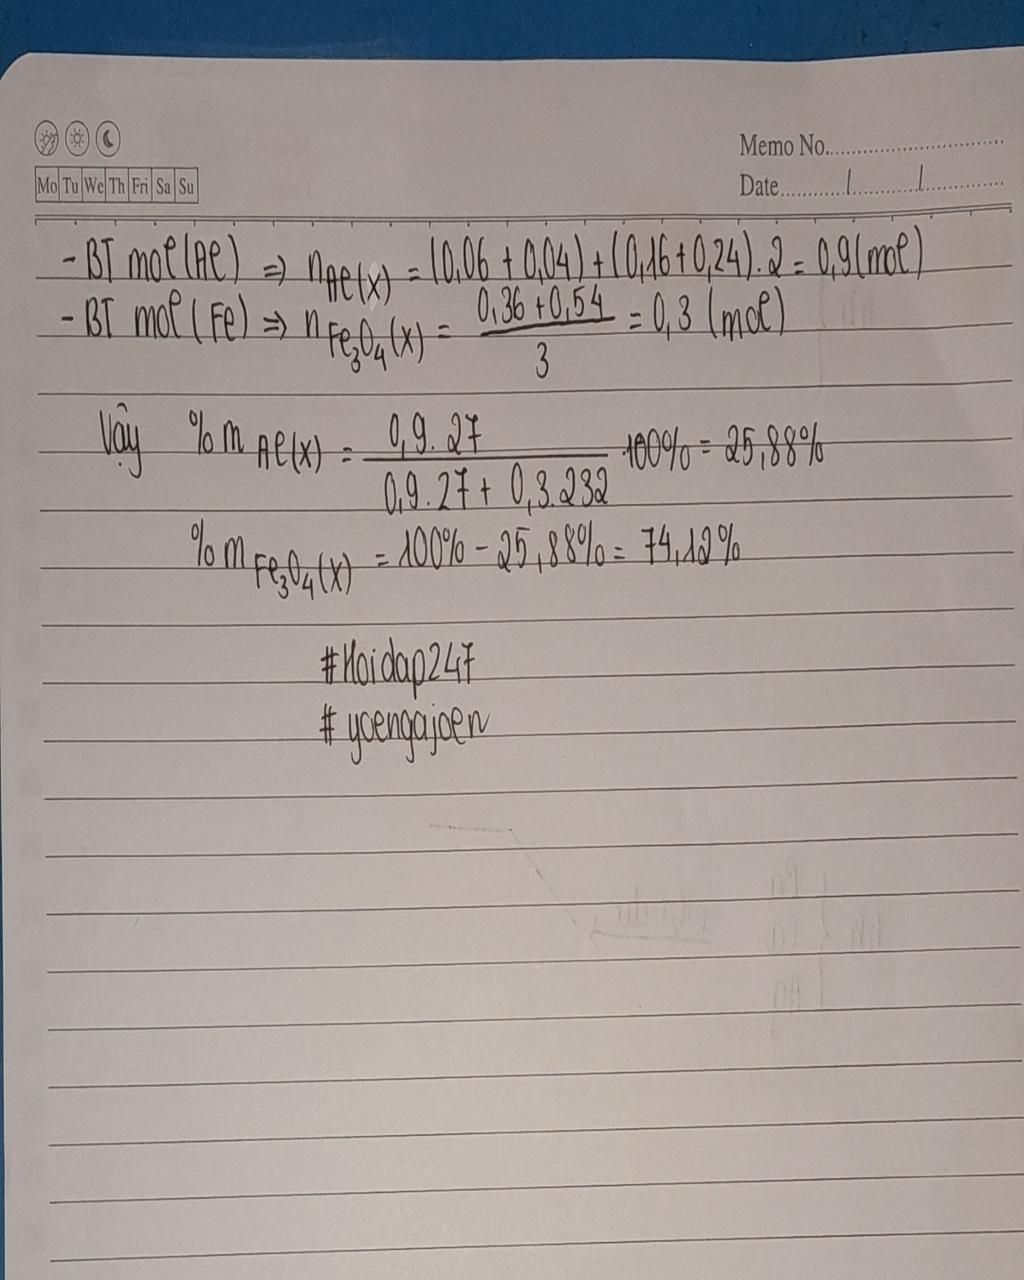 Memo No.
Mo Tu We Th Fri Sa Su
Date / /
- BT mol (Al) => nAl(X) = (0,06 + 0,04) + (0,16 + 0,24). 2 = 0,9 (mol)
- BT mol (Fe) => nFe3O4(X) = 0,36 + 0,54 / 3 = 0,3 (mol)
Vậy %m Al(X) = 0,9. 27 / 0,9. 27 + 0,3. 232 . 100% = 25,88%
%m Fe3O4(X) = 100% - 25,88% = 74,12%
#Hoidap247
# yoengajoen